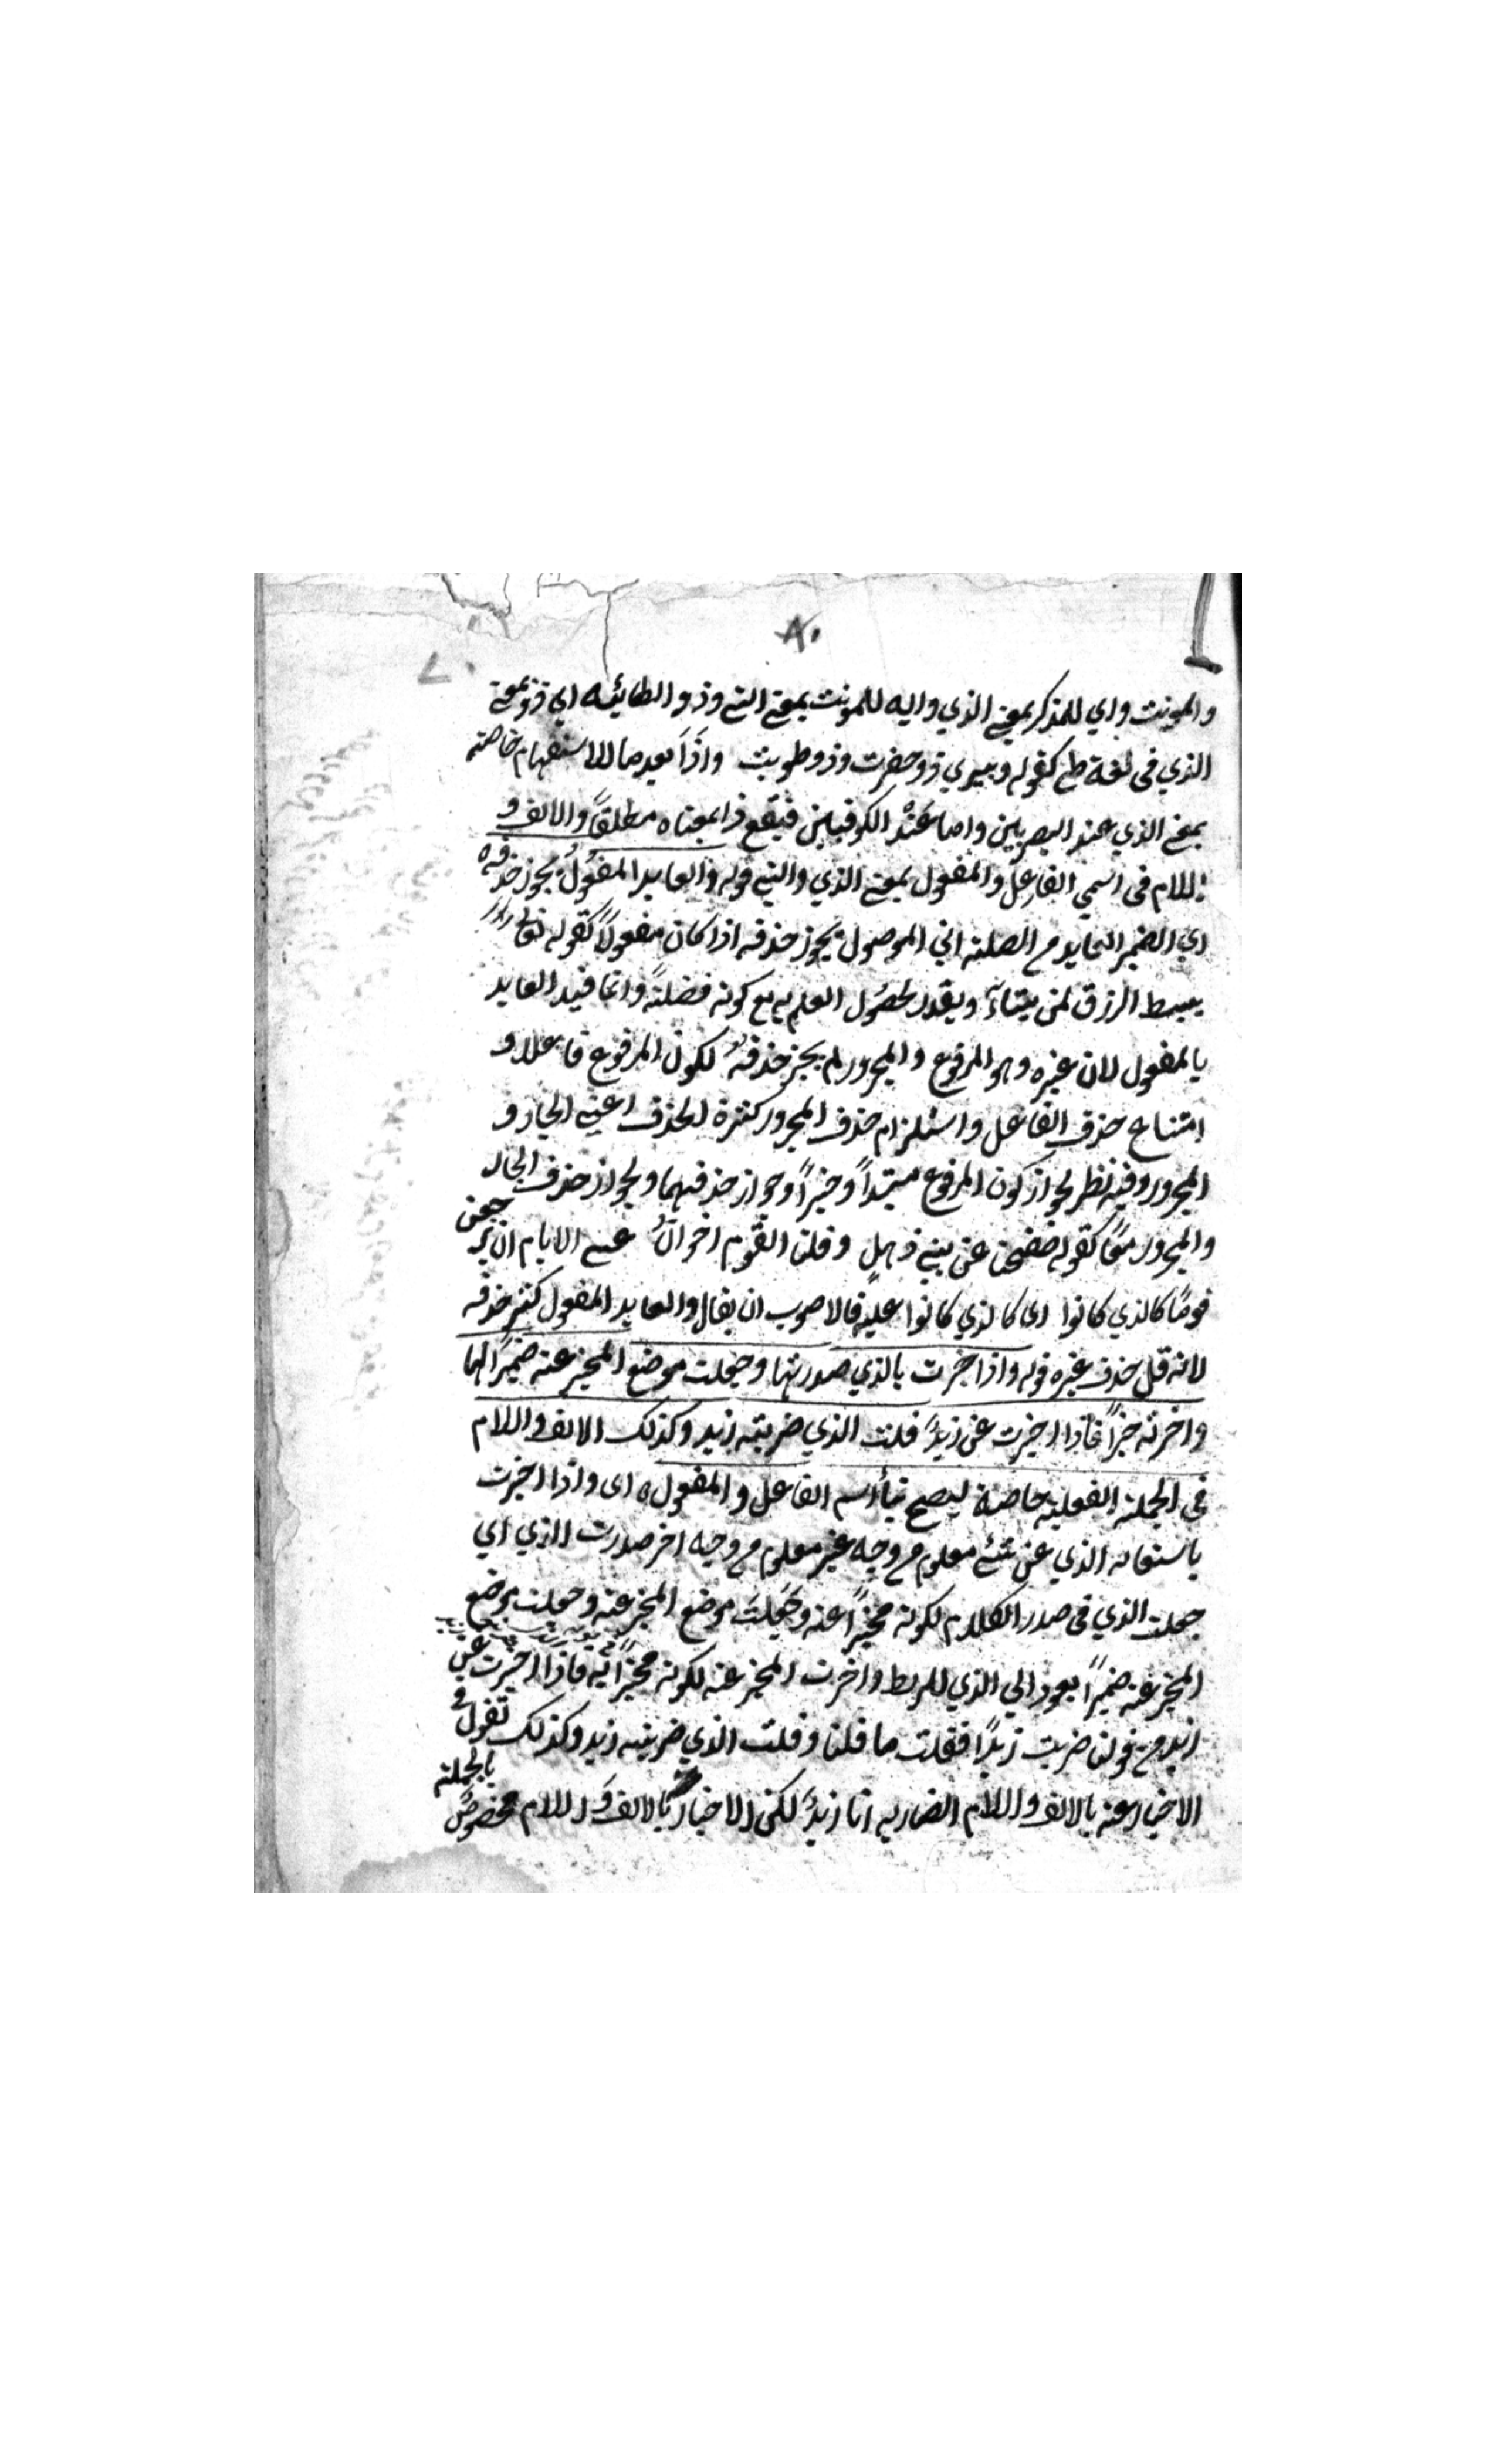 ٨٠
٧٠
والمونث واي للمذكر بمعنى الذي واية للمونث بمعنى التي وذو الطائية اي ذو بمعنى
الذي فى لغة طى كقوله وبيرى ذو حفرت وذو طويت واذا بعد ما للاستفهام خاصة
بمعنى الذي عند البصريين واما عند الكوفيين فيقع ذا بمعناه مطلقاً والالف و
اللام فى اسمي الفاعل والمفعول بمعنى الذي والتي قوله والعايد المفعول يجوز حذفه
اي الضمير العايد من الصلة الى الموصول يجوز حذفه اذا كان مفعولاً كقوله تعالى
يبسط الرزق لمن يشاء ويقدر لحصول العلم به مع كونه فضلة وانما قيد العايد
بالمفعول لان غيره وهو المرفوع والمجرور لم يجز حذفه لكون المرفوع فاعلا و
امتناع حذف الفاعل واستلزام حذف المجرور كثرة الحذف اعنى الجار و
المجرور وفيه نظر لجواز كون المرفوع مبتدأ وخبراً وجواز حذفهما ولجواز حذف الجار
والمجرور معًا كقوله صفحنا عن بني ذهل وقلنا القوم اخوان عسى الايام ان يرجعن
قومًا كالذي كانوا اى كالذي كانوا عليه فالاصوب ان يقال والعايد المفعول كثر حذفه
لانه قل حذف غيره قوله واذا اخبرت بالذي صدرتها وجعلت موضع المخبر عنه ضميرًا لها
واخرته خبراً فاذا اخبرت عن زيد قلت الذي ضربته زيد وكذلك الالف واللام
فى الجملة الفعلية خاصة ليصح بناء اسم الفاعل والمفعول اى واذا اخبرت
باستعانة الذي عن شئ معلوم من وجه غير معلوم من وجه اخر صدرت الذي اي
جعلت الذي فى صدر الكلام لكونه مخبراً عنه وجعلت موضع المخبر عنه وجعلت موضع
المخبر عنه ضميراً يعود الى الذي للربط واخرت المخبر عنه لكونه مخبراً به فاذا اخبرت عن
زيد من قولنا ضربت زيدًا فقلت ما قلنا وقلت الذي ضربته زيد وكذلك تقول فى
الاخبار عنه بالالف واللام الضاربه انا زيد لكن الاخبار بالالف واللام مخصوص بالجملة